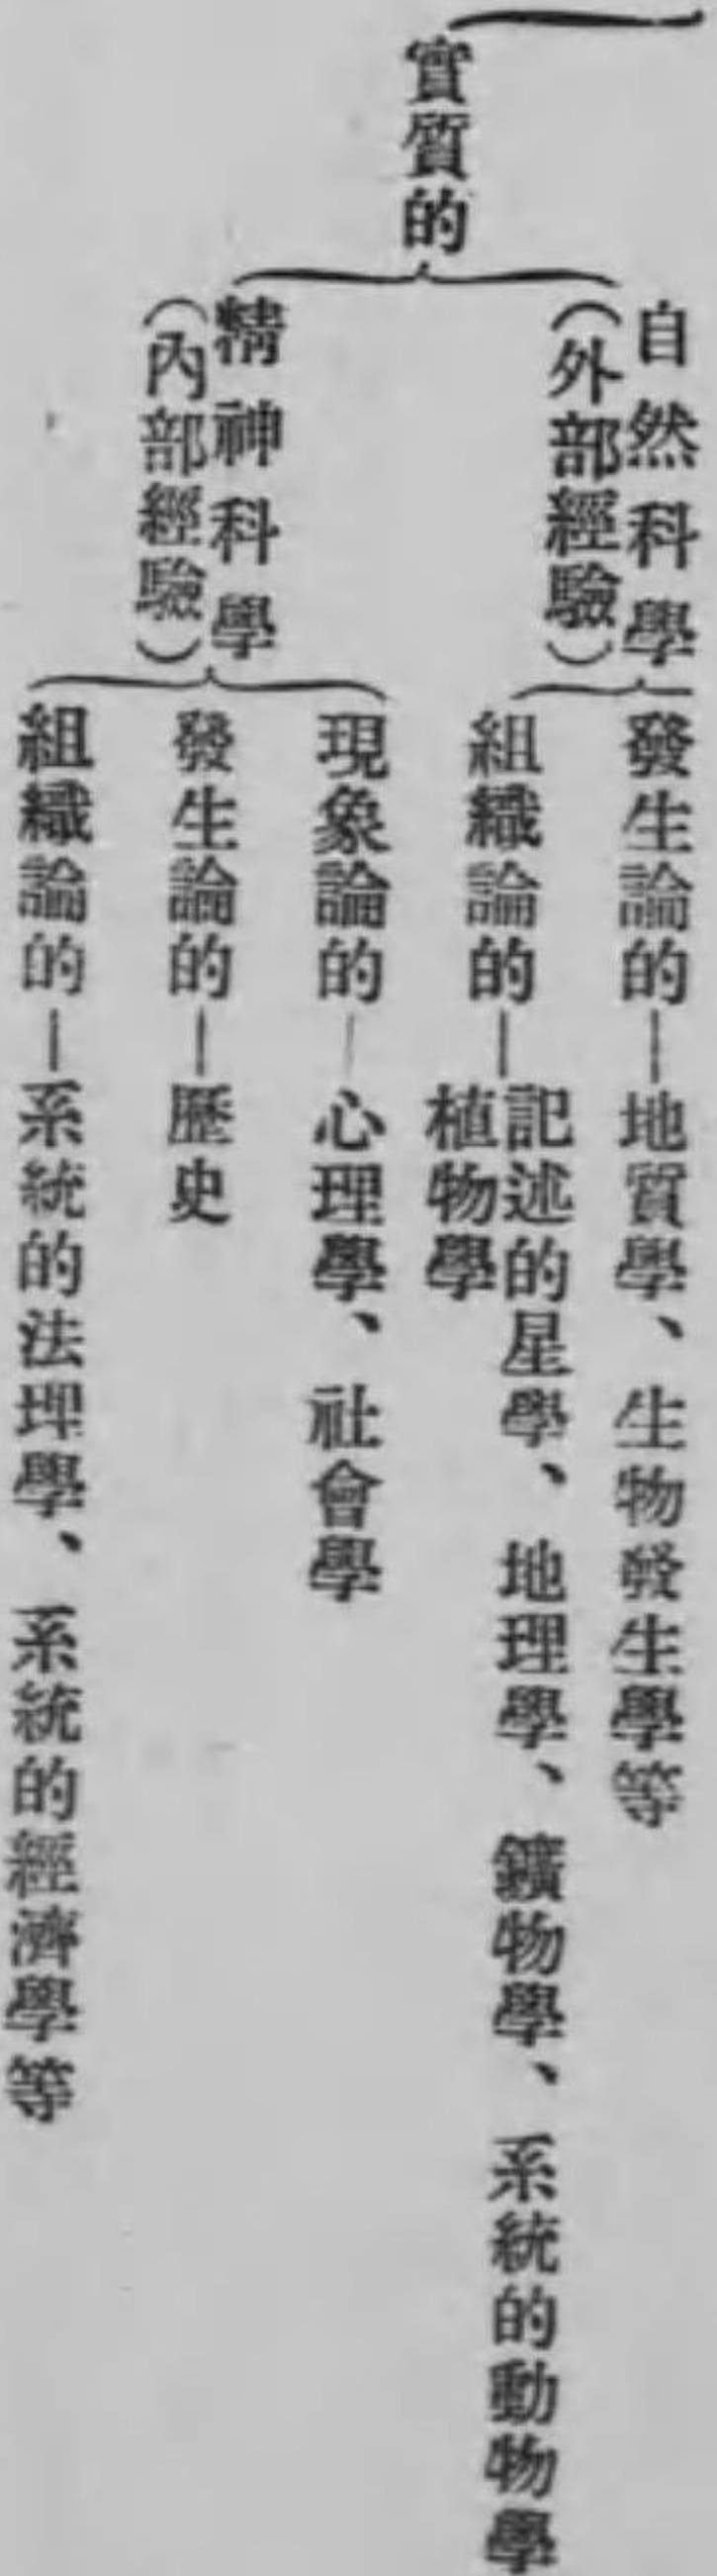 實質的
自然科學
（外部經驗）
發生論的—地質學、生物發生學等
組織論的—記述的星學、地理學、鑛物學、系統的動物學
植物學
精神科學
（內部經驗）
現象論的—心理學、社會學
發生論的—歷史
組織論的—系統的法理學、系統的經濟學等